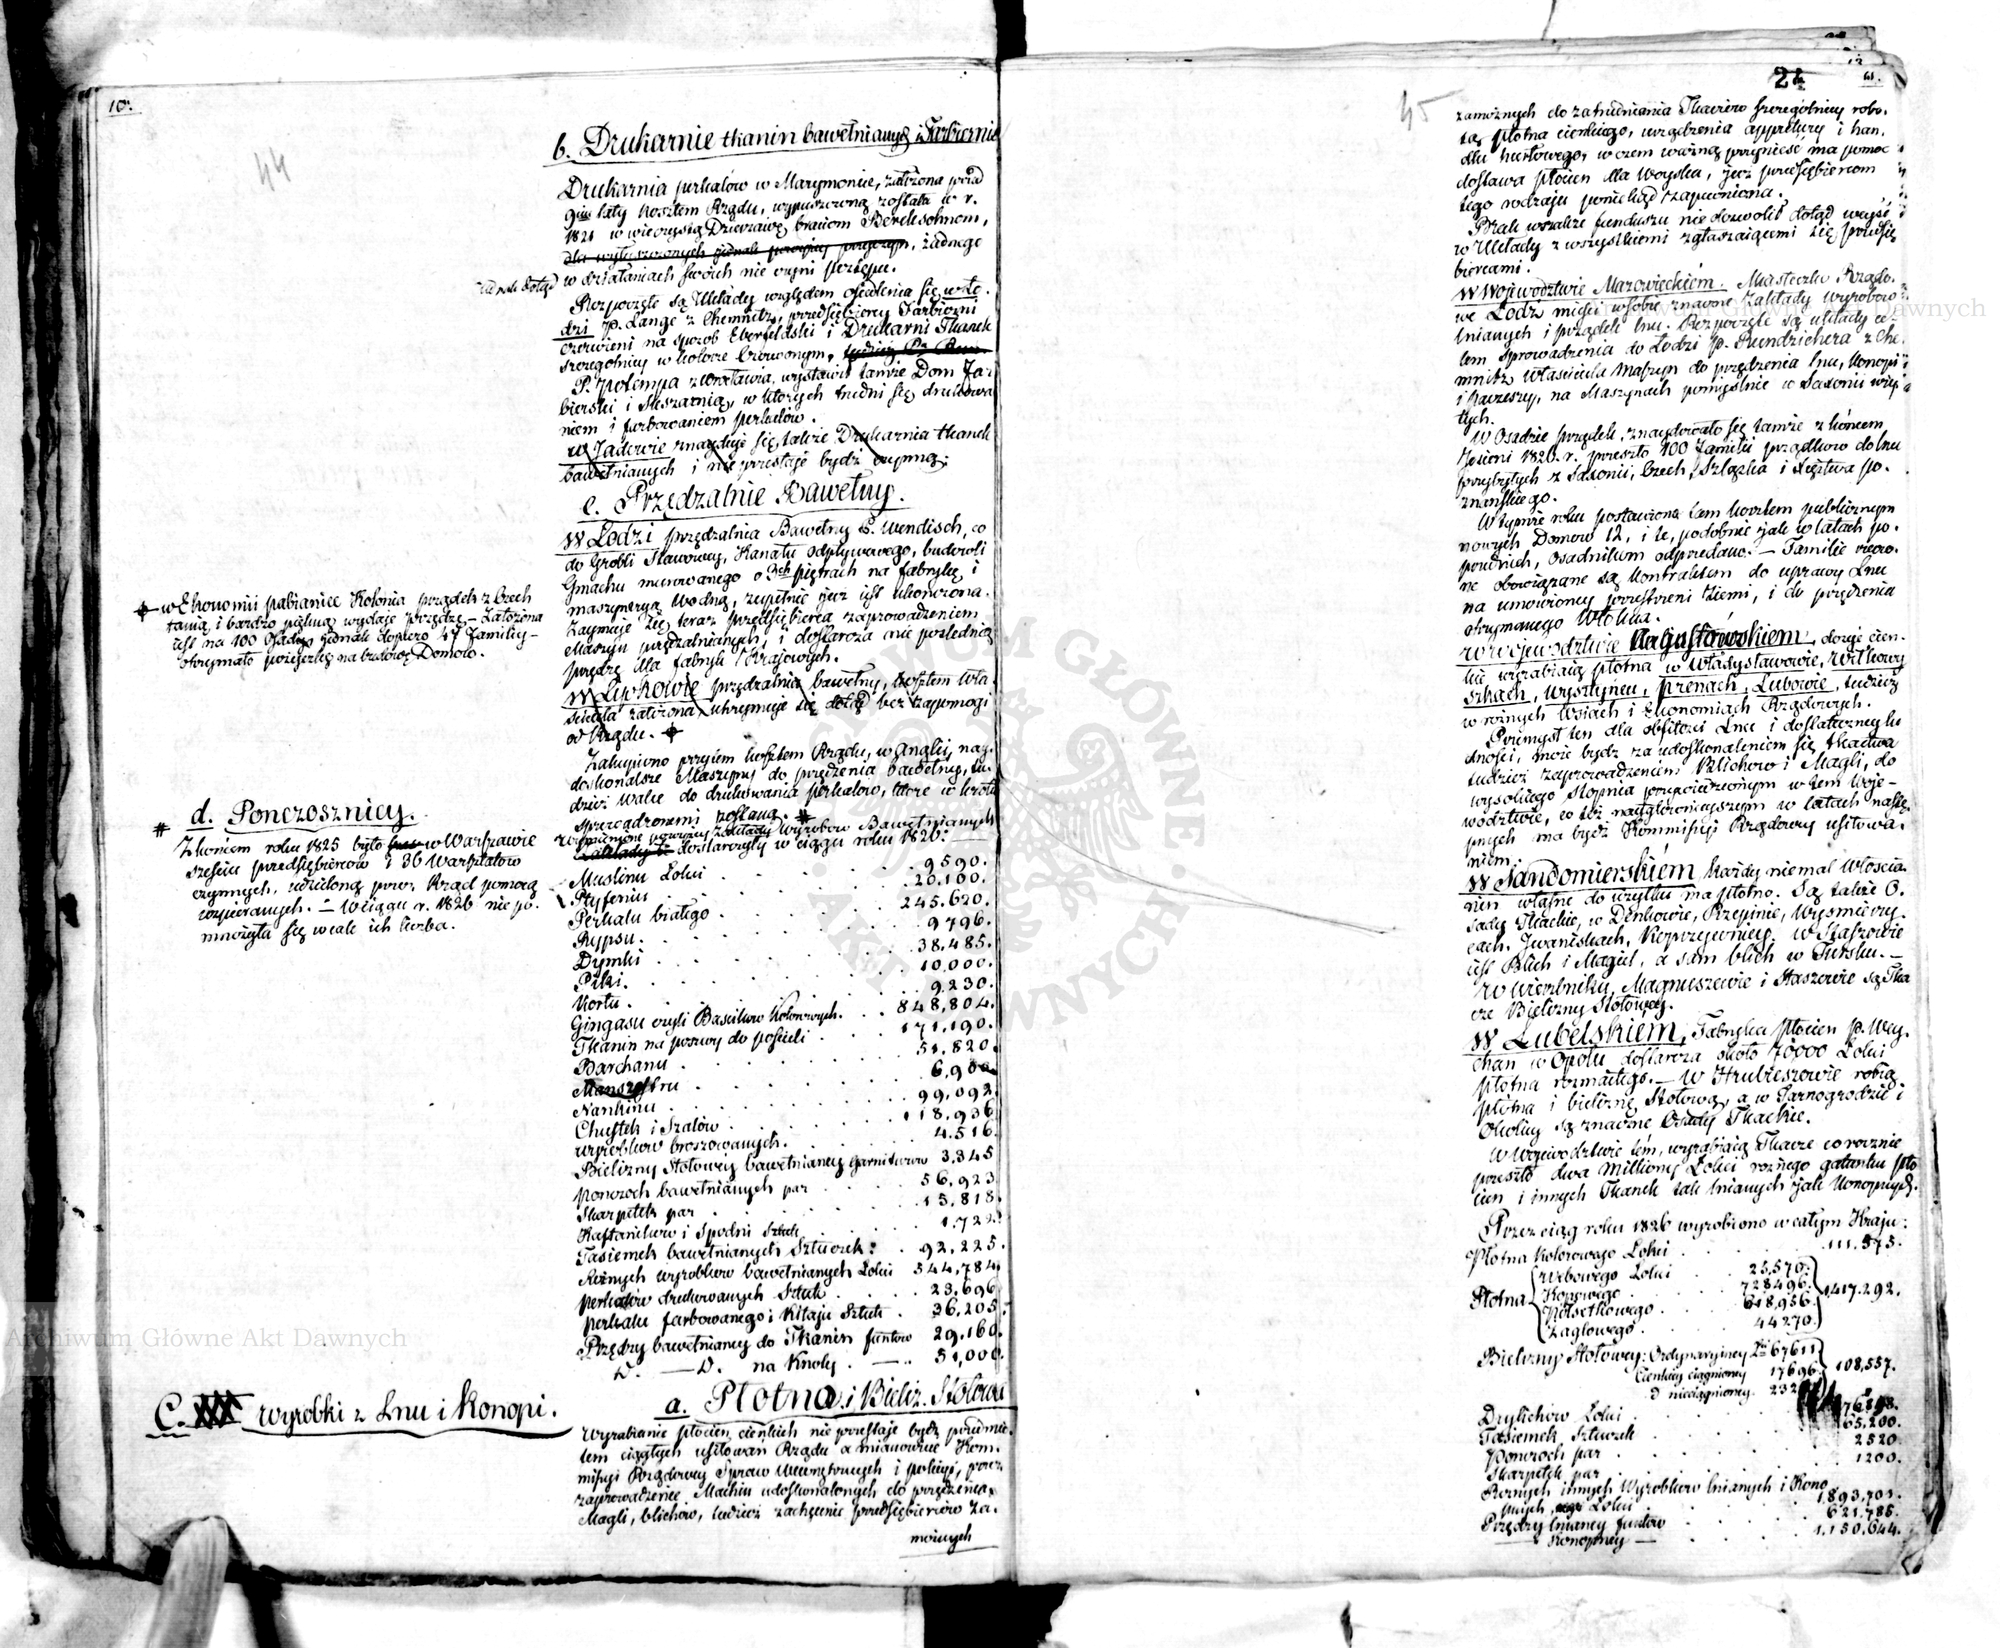 10.
44
b. Drukarnie tkanin bawełnianych i Farbiernie
Drukarnia perkalów w Marymoncie, założona przed
kosztem Rządu, wypuszczoną została w r.
1821 w wieczystą Dzierżawę braciom Berehsohnom,
żadnego
jednak dotąd
w działaniach swoich nie czyni postępu.
Rozpoczęte są Układy względem osiedlenia się w Ło-
dzi p. Lange z Chemnitz, przedsiębiorcy Farbierni
czerwieni na sposób Elberfeldski i Drukarni Tkanek
szczególniey w kolorze bronzowym,
P. Polempa z Wrocławia, wystawił tamże Dom Far
bierski i Suszarnią, w których trudni się drukowa
niem i farbowaniem perkalów.
w Jadowie znayduje się także Drukarnia tkanek
bawełnianych i nie przestaje bydź czynną.
c. Przędzalnie Bawełny.
W Łodzi przędzalnia Bawełny C. Wendisch, co
do Grobli Stawowey, Kanału odpływowego, budowli
Gmachu murowanego o 3ch piętrach na fabrykę i
maszyneryą wodną, zupełnie już iest ukończona.
Zaymuje się teraz przedsiębierca zaprowadzeniem
Maszyn przędzalnianych, i dostarcza nie poślednią
przędzę dla fabryk Krajowych.
W Żyrkowie przędzalnia bawełny, kosztem wła-
ściciela założona utrzymuje się dotąd bez zapomogi
od Rządu.
Zakupiono przytem kosztem Rządu, w Anglii, nay-
doskonalsze Maszyny do przędzenia bawełny, tu-
dzież Walce do drukowania perkalów, które w krótce
sprowadzonemi zostaną. #
Wymienione powyżey Zakłady Wyrobów Bawełnianych
dostarczyły w ciągu roku 1826:
Muslinu Łokci . . . 9590.
Pryfenus . . . 20,100.
Perkalu białego . . . 245,620.
Rypsu . . . 9796.
Dymki . . . 38,485.
Piki . . . 10,000.
Kortu . . . 9,230.
Gingasu czyli Bascików kolorowych . . 848,804.
Tkanin na poszwy do pościeli . . . 171,190.
Barchanu . . . 51,820.
Manszestru . . . 6,900
Nankinu . . . 99,092.
Chustek i Szalów . . . 118,936
Wyrobków broszowanych . . . 4,516.
Bielizny Stołowey bawełnianey Garniturów 3,345
Ponczoch bawełnianych par . . . 56,923
Skarpetek par . . . 15,818.
Kaftaników i Spodni Sztuk . . . 1,722.
Tasiemek bawełnianych Sztuczek . . 92,225.
Różnych wyrobków bawełnianych Łokci 544,784
Perkalów drukowanych Sztuk . . . 23,696
Perkalu farbowanego i Kitaju Sztuk . 36,205.
Przędzy bawełnianey do Tkanin funtów 29,160.
D. — D. na Knoty . — . 51,000.
w Ekonomii Pabianice Kolonia prządek z Czech
tanią i bardzo piękną wydaje przędzę. Założona
iest na 100 Osadę, jednak dopiero 47 Familiy
otrzymało pożyczkę na budowę Domów.
d. Ponczosznicy.
# Z końcem roku 1825 było w Warszawie
sześciu przedsiębierców i 36 Warsztatów
czynnych, udzieloną przez Rząd pomocą
wspieranych. — W ciągu r. 1826 nie po-
mnożyła się wcale ich liczba.
C. Wyrobki z Lnu i Konopi.
a. Płótna i Bieliz. Stołowa
Wyrabianie płócien cienkich nie przestaje bydź przedmio-
tem ciągłych usiłowań Rządu a mianowicie Kom-
missyi Rządowey Spraw Wewnętrznych i Policyi, przez
zaprowadzenie Machin udoskonalonych do przędzenia,
Magli, blichów, tudzież zachęcenie przedsiębierców za-
możnych
24
45
zamożnych do zatrudniania Tkaczów szczególniey robo-
tą płótna cienkiego, urządzenia appretury i han-
dlu hurtowego, w czem ważną przynieść ma pomoc
dostawa płócien dla Woyska, już przedsiębiercom
tego rodzaju poniekąd zapewniona.
Brak wszakże funduszu nie dozwolił dotąd weyść
w Układy z wszystkiemi zgłaszaiącemi się przedsię
biercami.
W Województwie Mazowieckiem. Miasteczko Rządo-
we Łodz mieści w sobie znaczne Zakłady wyrobów
lnianych i prządek lnu. Rozpoczęte są układy ce-
lem sprowadzenia do Łodzi p. Rundzichera z Che-
mnitz właściciela Maszyn do przędzenia lnu, konopi
i paczesi, na Maszynach pomyślnie w Saxonii uży-
tych.
W Osadzie prządek, znaydowało się tamże z końcem
Jesieni 1826. r. przeszło 100 Familii prządków do lnu
przybyłych z Saxonii, Czech, Szląska i Xięztwa po-
znańskiego.
W tymże roku postawiono tam kosztem publicznym
nowych Domów 12, i te, podobnie jak w latach po-
przednich, osadnikom odprzedano. — Familie rzeczo-
ne obowiązane są kontraktem do uprawy Lnu
na umówioney przestrzeni ziemi, i do przędzenia
otrzymanego Włókna.
W Województwie Augustowskiem, dosyć cien-
kie wyrabiaią płótna w Władysławowie, Wiłkowy
szkach, Wysztyńcu, Prenach, Łubowie, tudzież
w różnych Wsiach i Ekonomiach Rządowych.
Przemysł ten dla obfitości Lnu i dostateczney lu
dności, może bydź za udoskonaleniem się tkactwa
tudzież zaprowadzeniem Blichów i Magli, do
wysokiego stopnia przyprowadzonym w tem Woje-
wództwie, co też naygłównieyszym w latach nastę-
pnych ma bydź Kommissyi Rządowey usiłowa-
niem.
W Sandomierskiem każdy niemal Włościa
nin własne do użytku ma płótno. Są także O-
sady Tkackie, w Denkowie, Przepinie, Wyśmierzy-
cach, Iwaniskach, Koprzywnicy. W Staszowie
iest Blich i Magiel, a sam blich w Tursku. —
W Wierzbniku, Magnuszewie i Staszowie są Tka
cze Bielizny Stołowey.
W Lubelskiem, Fabryka płócien p. Mey-
chan w Opolu dostarcza około 70000 Łokci
płótna rozmaitego. — W Hrubieszowie robią
płótna i bieliznę Stołową, a w Tarnogrodzie i
Okolicy są znaczne Osady Tkackie.
W Województwie tem, wyrabiaią Tkacze corocznie
przeszło dwa Milliony Łokci różnego gatunku płó
cien i innych Tkanek tak lnianych jak konopnych.
Przez ciąg roku 1826 wyrobiono w całym Kraju:
Płótna kolorowego Łokci . . . 111,575.
Płótna { Webowego Łokci . . . 25,570.
Kopowego . . . 728,496.
Półsetkowego . . . 618,956.
Żaglowego . . . 44270. } 1,417,292.
Bielizny Stołowey: Ordynaryiney 67611
Cienkiey ciągnioney 17696
D nieciągnioney } 108,557.
Drylichów Łokci
Tasiemek Sztuczek . . . 65,200.
Ponczoch par . . . 2520.
Skarpetek par . . . 1200.
Różnych innych Wyrobków lnianych i Kono
pnych, Łokci . . . 1,893,701.
Przędzy lnianey funtów . . . 621,785.
— Konopney — . . . 1,150,644.
Archiwum Główne Akt Dawnych
Archiwum Główne Akt Dawnych
ARCHIWUM GŁÓWNE AKT DAWNYCH